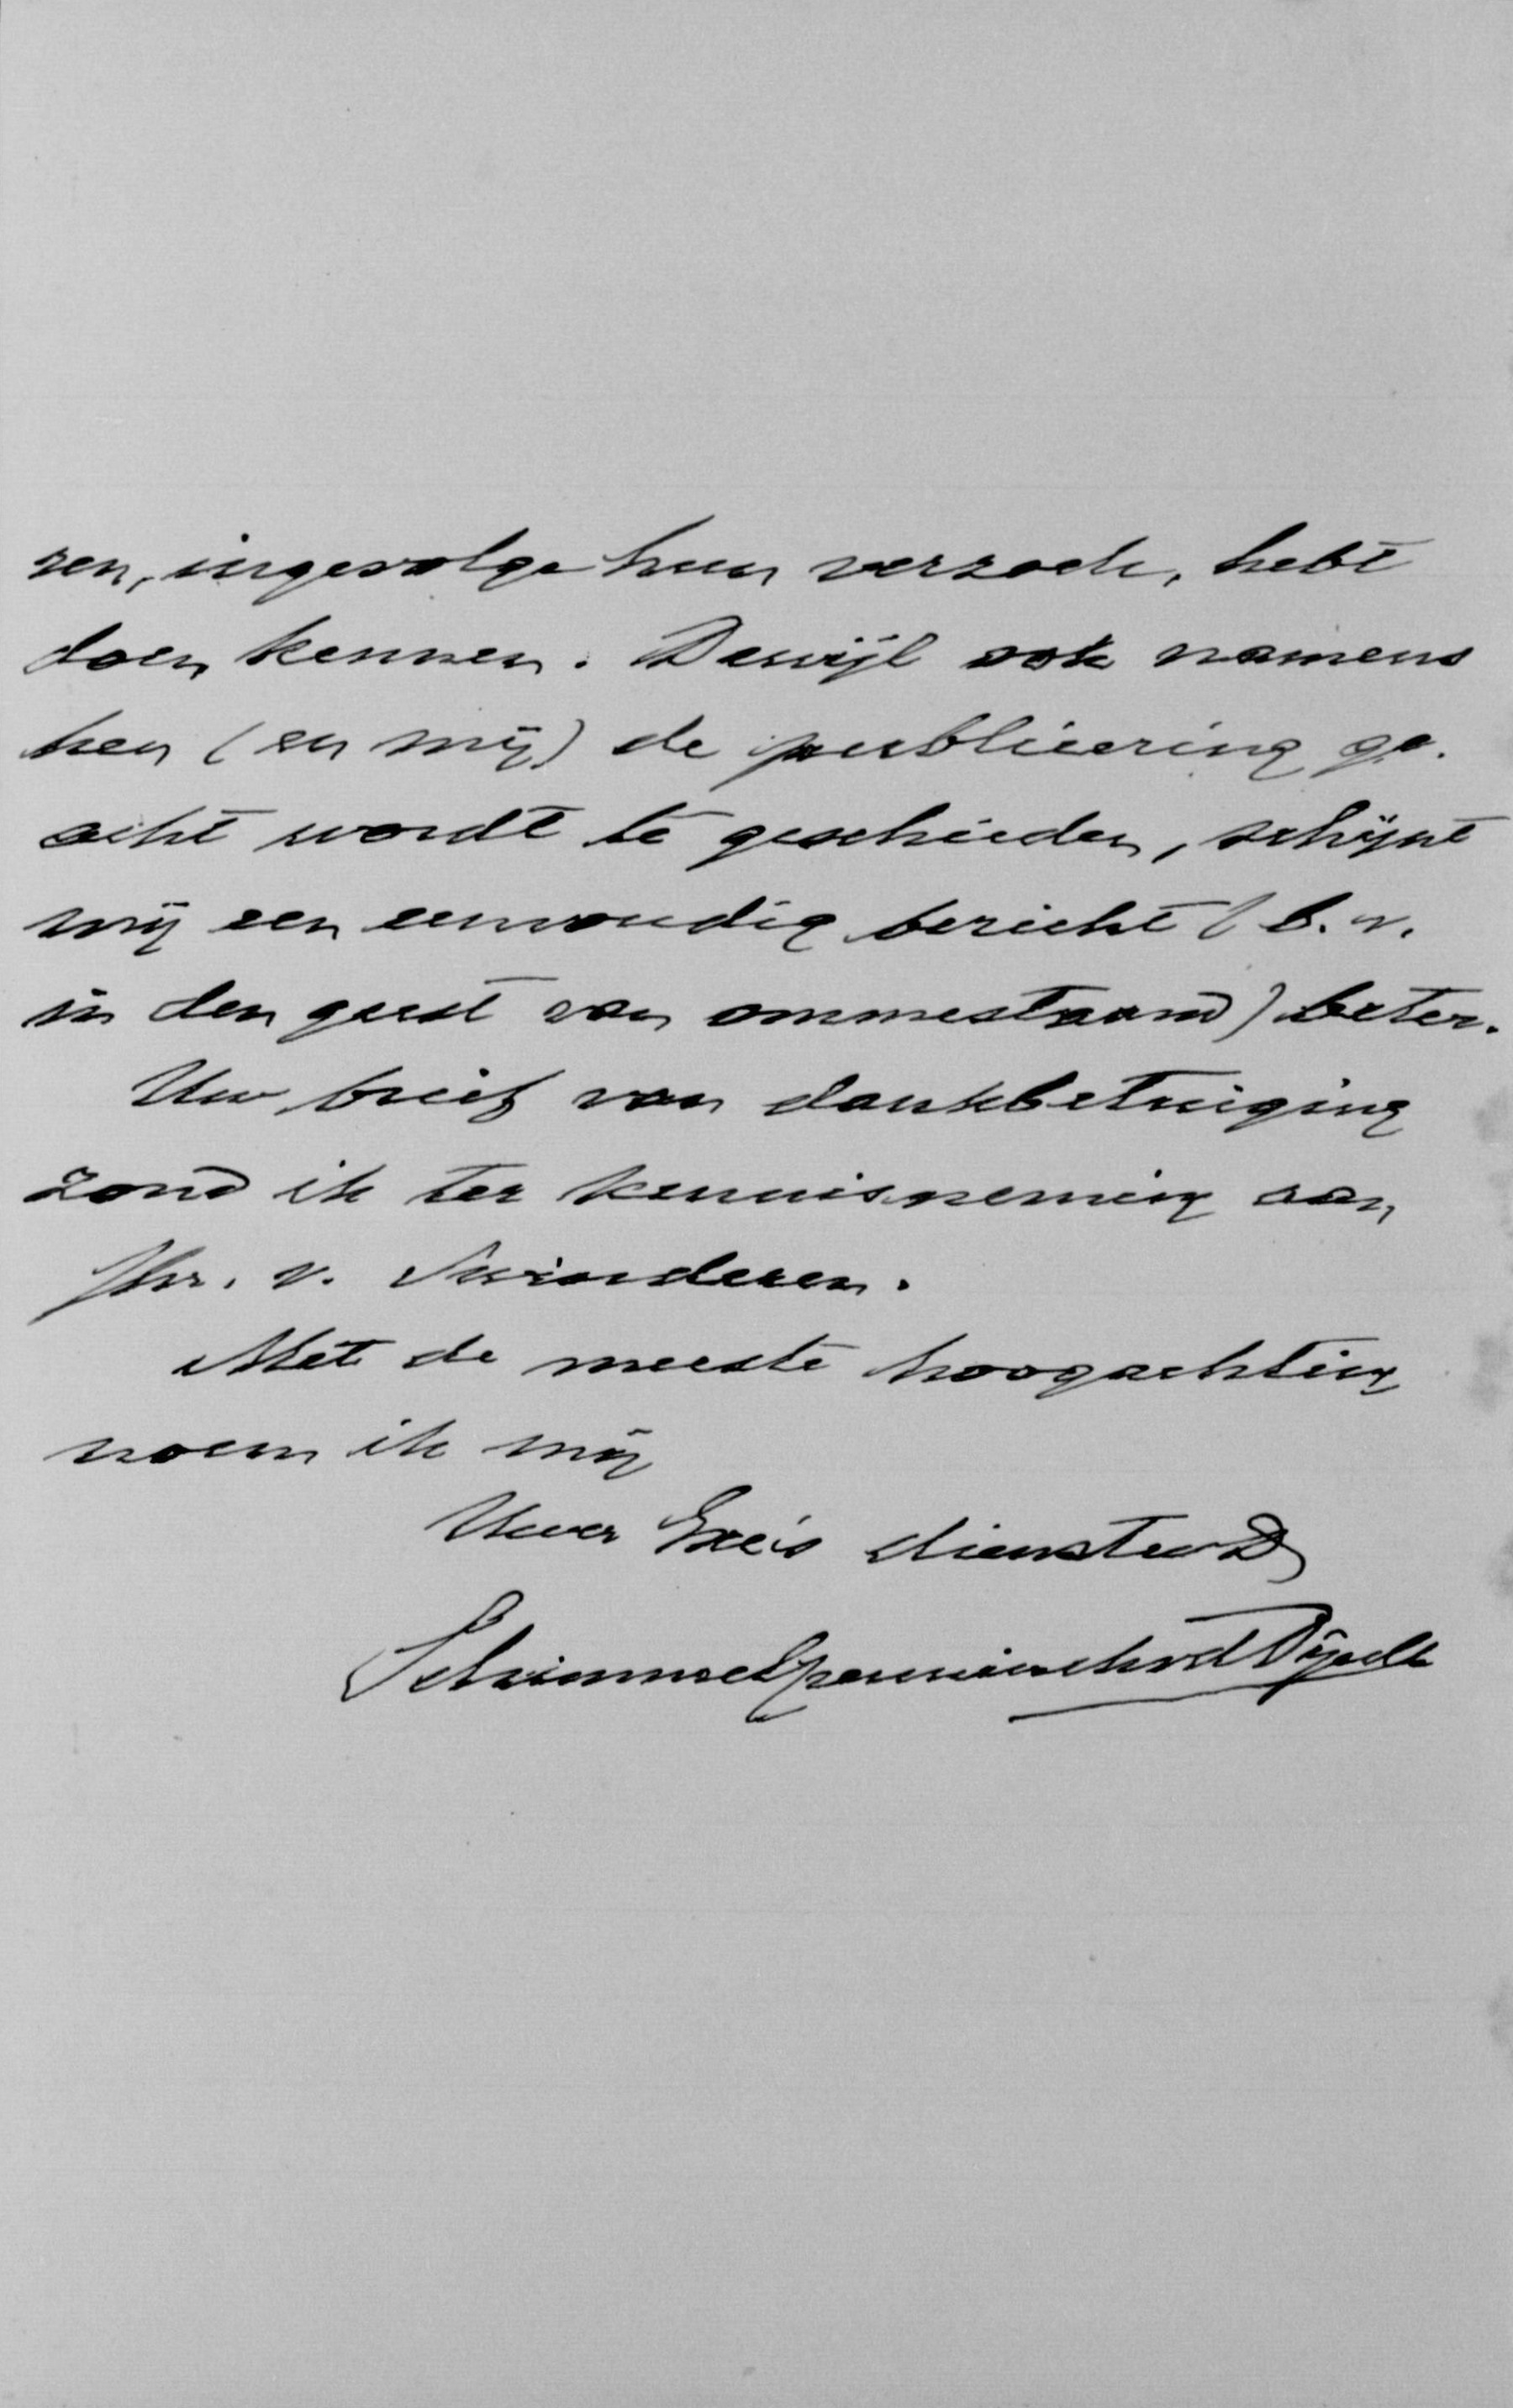 ren, ingevolge hun verzoek, hebt
doen kennen. Dewijl ook namens
hen (en mij) de publiceering ge-
acht wordt te geschieden, schijnt
mij een eenvoudig bericht (b.v.
in den geest van ommestaand) beter.
Uw brief van dankbetuiging
zond ik ter kennisneming aan
Jhr. v. Swinderen.
Met de meeste hoogachting
noem ik mij
Uwer Exc's dienstw D
Schimmelpenninck vd Oijech